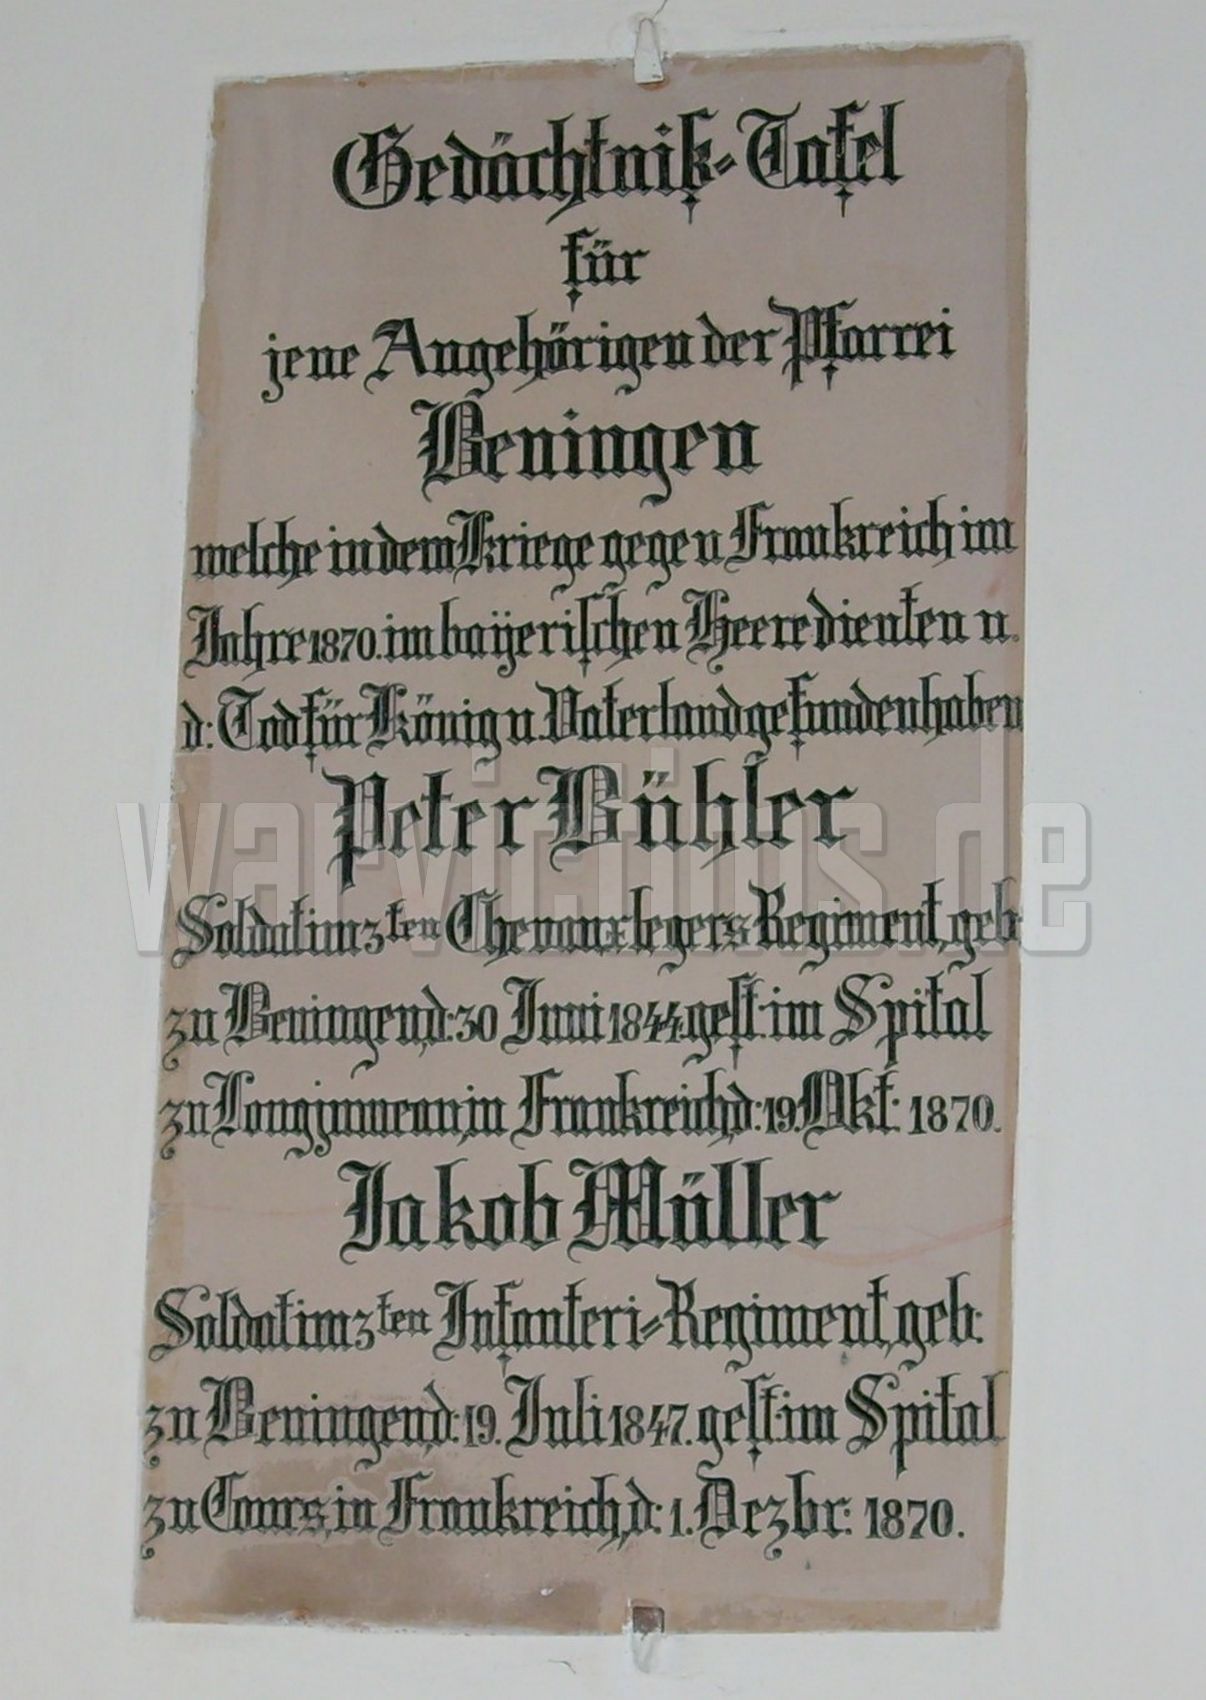 Gedächtniß-Tafel
für
jene Angehörigen der Pfarrei
Beningen
welche in dem Kriege gegen Frankreich im
Jahre 1870. im bayerischen Heere dienten u.
d: Tod für König u. Vaterland gefunden haben
Peter Bühler
warvictims.de
Soldat im 3ten Chevauxlegers Regiment, geb:
zu Beningen, d: 30 Juni 1844. gest: im Spital
zu Longjumeau, in Frankreich, d: 19. Okt: 1870.
Jakob Müller
Soldat im 3ten Infanteri-Regiment, geb:
zu Beningen, d: 19. Juli 1847. gest: im Spital
zu Tours, in Frankreich, d: 1. Dezbr: 1870.